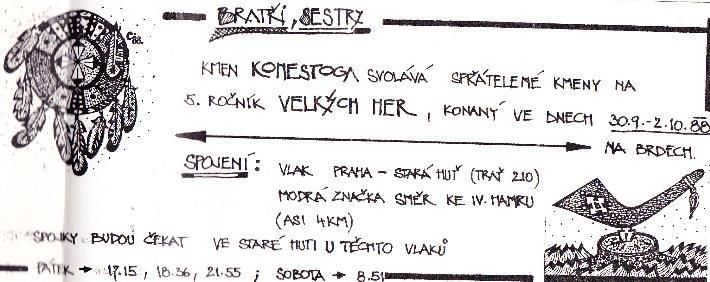 BRATŘI, SESTRY
KMEN KONESTOGA SVOLÁVÁ SPŘÁTELENÉ KMENY NA
5. ROČNÍK VELKÝCH HER, KONANÝ VE DNECH 30.9.-2.10.88
NA BRDECH.
SPOJENÍ: VLAK PRAHA - STARÁ HUŤ (TRAŤ 210)
MODRÁ ZNAČKA SMĚR KE IV. HAMRU
(ASI 4KM)
SPOJKY BUDOU ČEKAT VE STARÉ HUTI U TĚCHTO VLAKŮ
PÁTEK → 17.15, 18.36, 21.55 ; SOBOTA → 8.51